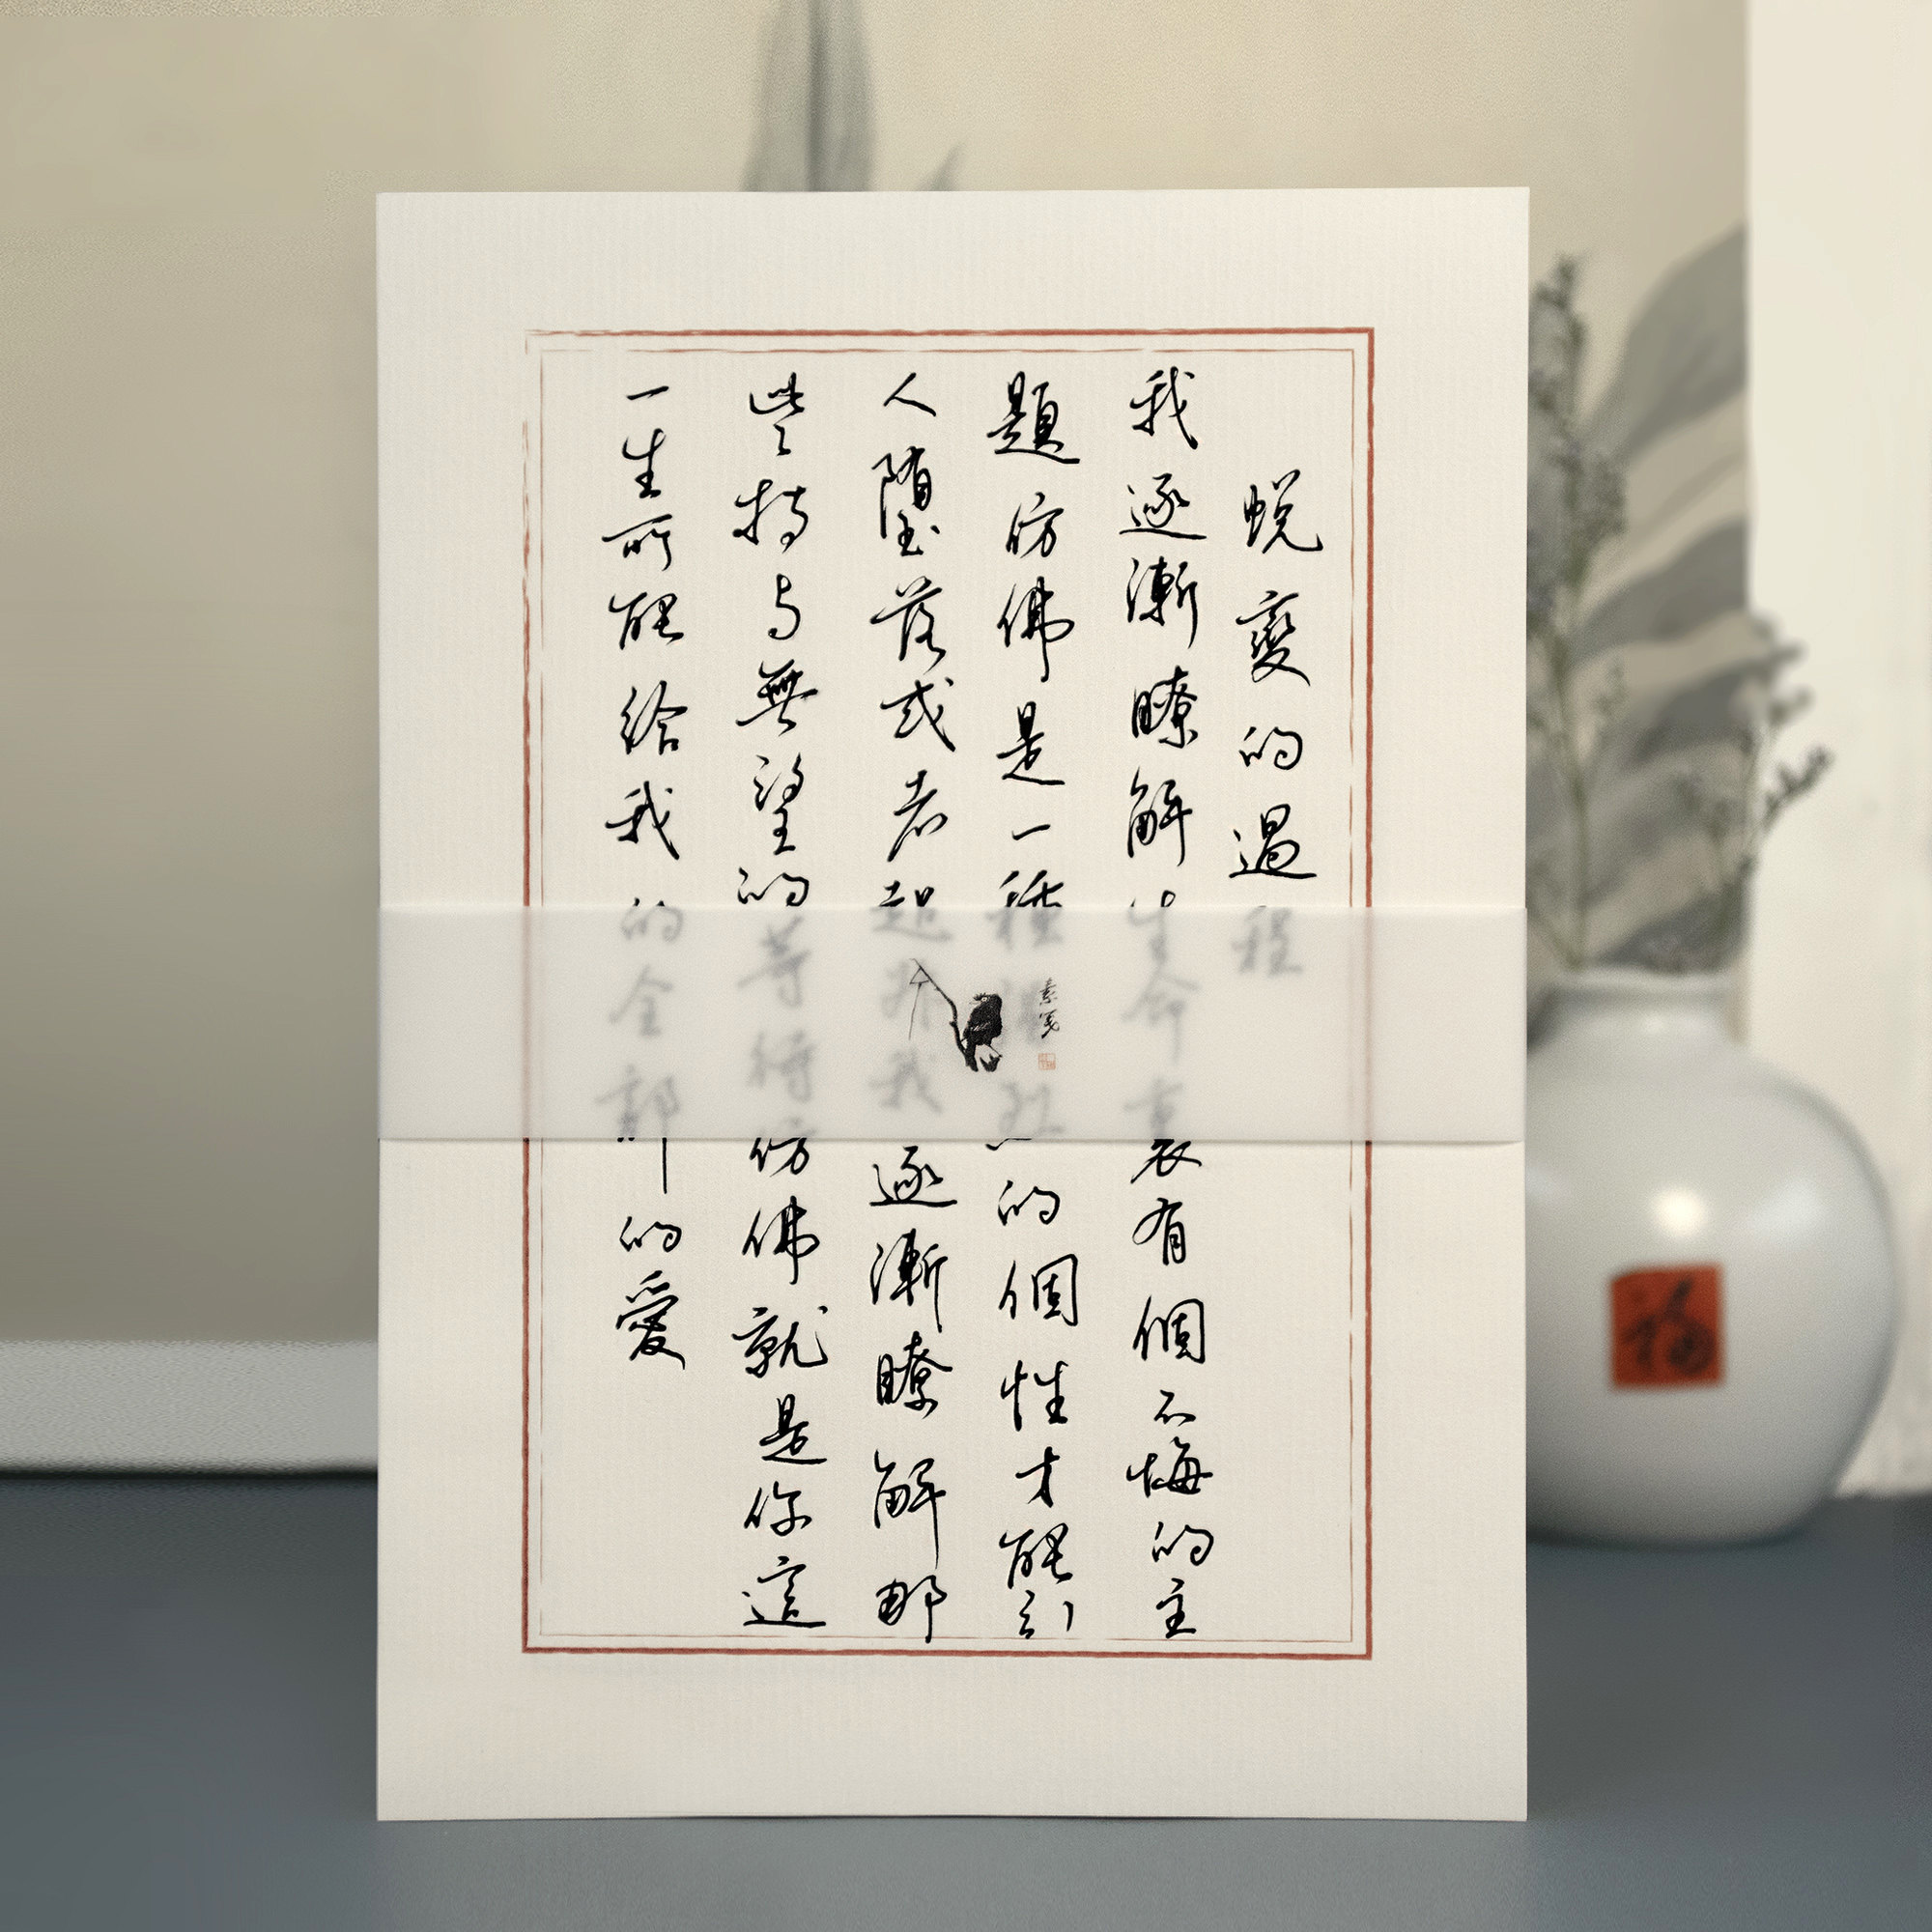 蛻變的過程
我逐漸瞭解生命裏有個不悔的主
題仿佛是一種烈的個性才能引
人墮落或者超升我逐漸瞭解那
些持与無望的等待仿佛就是你這
一生所能給我的全部的愛
素箋
福